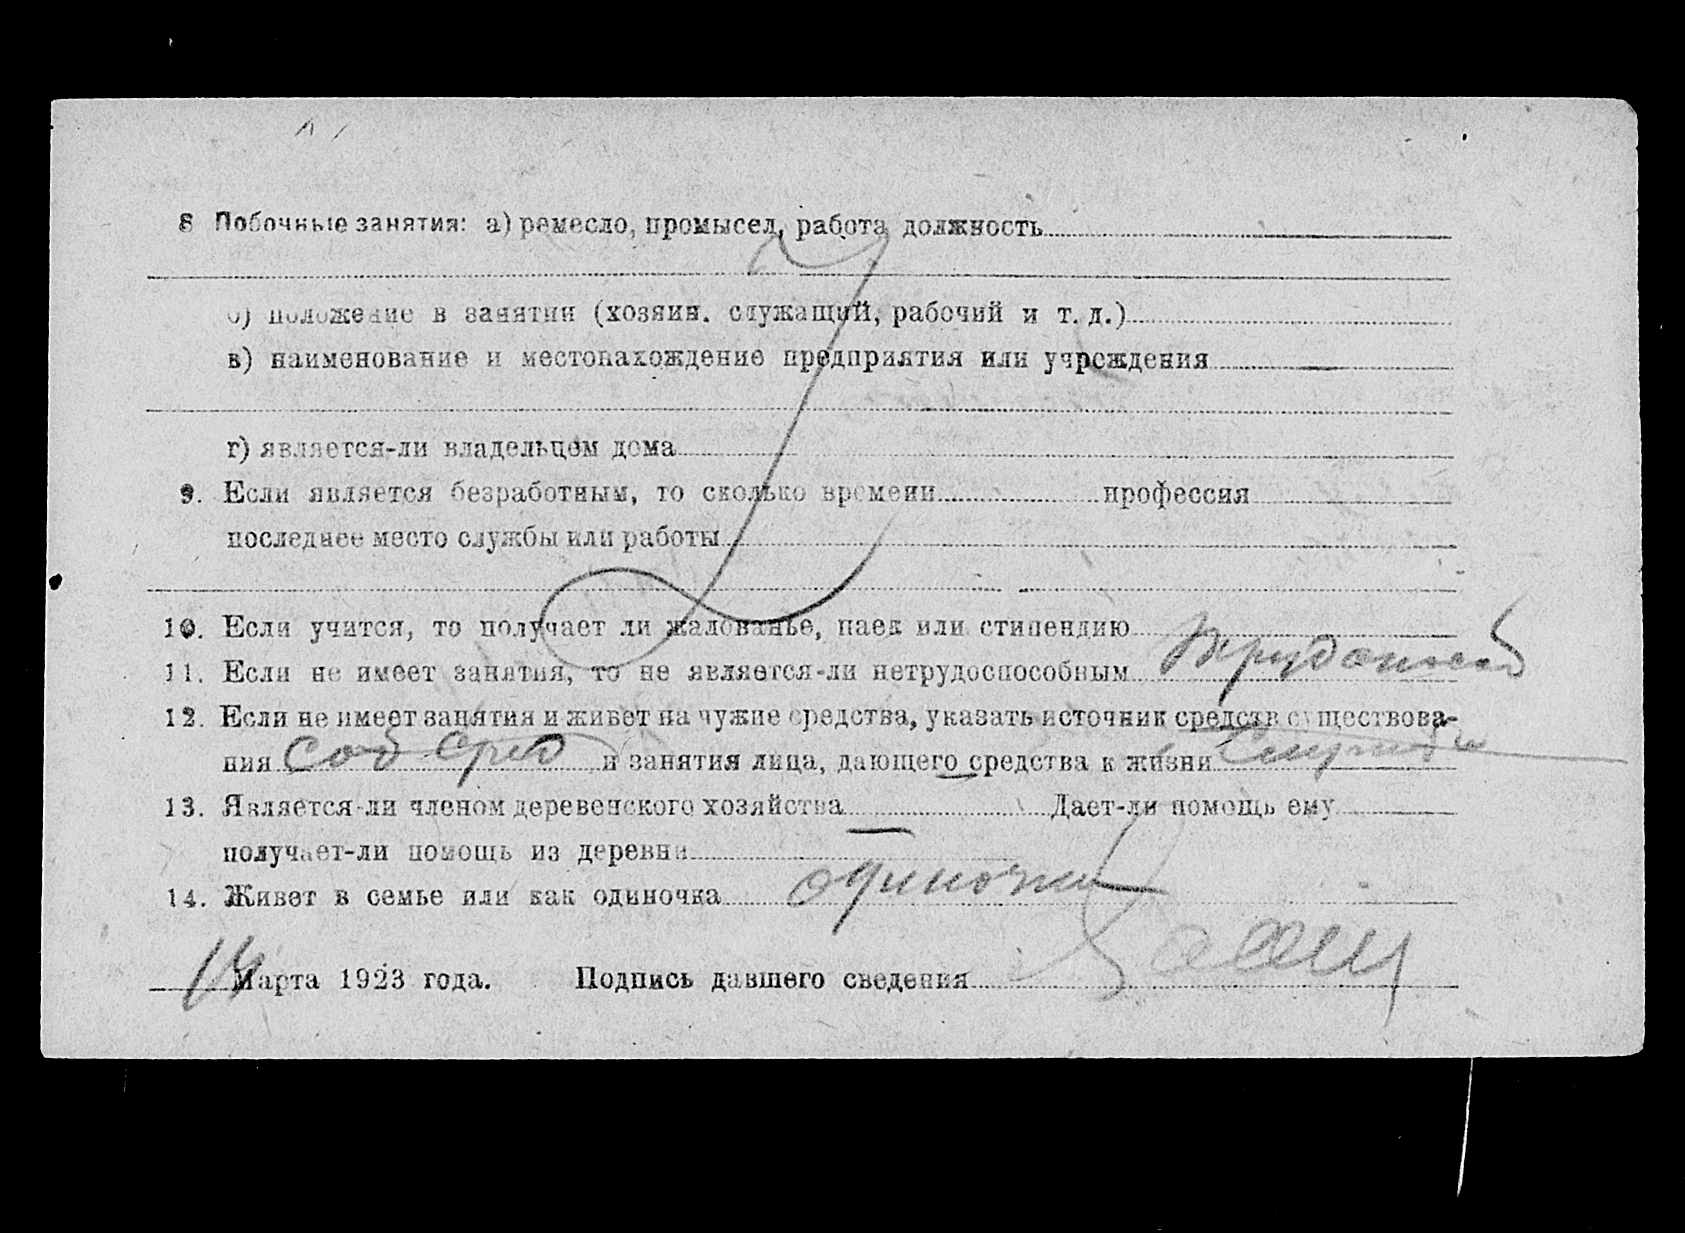 8 Побочные занятия: а) ремесло, промысел, работа должность
б) положение в занятии (хозяин. служащий, рабочий и т. д.)
в) наименование и местонахождение предприятия или учреждения
г) является-ли владельцем дома
9. Если является безработным, то сколько времени профессия
последнее место службы или работы
10. Если учится, то получает ли жалованье, паек или стипендию
11. Если не имеет занятия, то не является-ли нетрудоспособным Трудоспособ
12. Если не имеет занятия и живет на чужие средства, указать источник средств существова-
ния соб сред и занятия лица, дающего средства к жизни
13. Является-ли членом деревенского хозяйства Дает-ли помощь ему
получает-ли помощь из деревни
14. Живет в семье или как одиночка одиночка
14 Марта 1923 года. Подпись давшего сведения